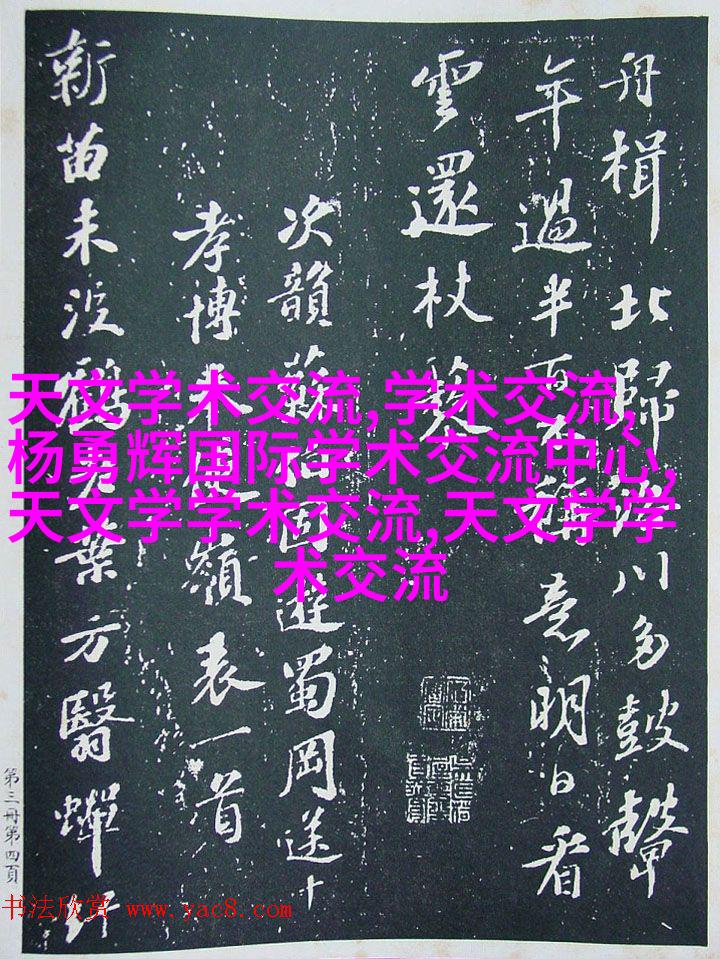 舟楫北歸秦川多鼓鼙
年過半百不稱意明日看
雲還杖藜
次韻蘇伯固遊蜀岡送
孝博奉使嶺表一首
新苗未沒鶴老葉方翳蟬
第三冊第四頁
天文学术交流,学术交流,
杨勇辉国际学术交流中心,
天文学学术交流,天文学学
术交流
书法欣赏 www.yac8.com